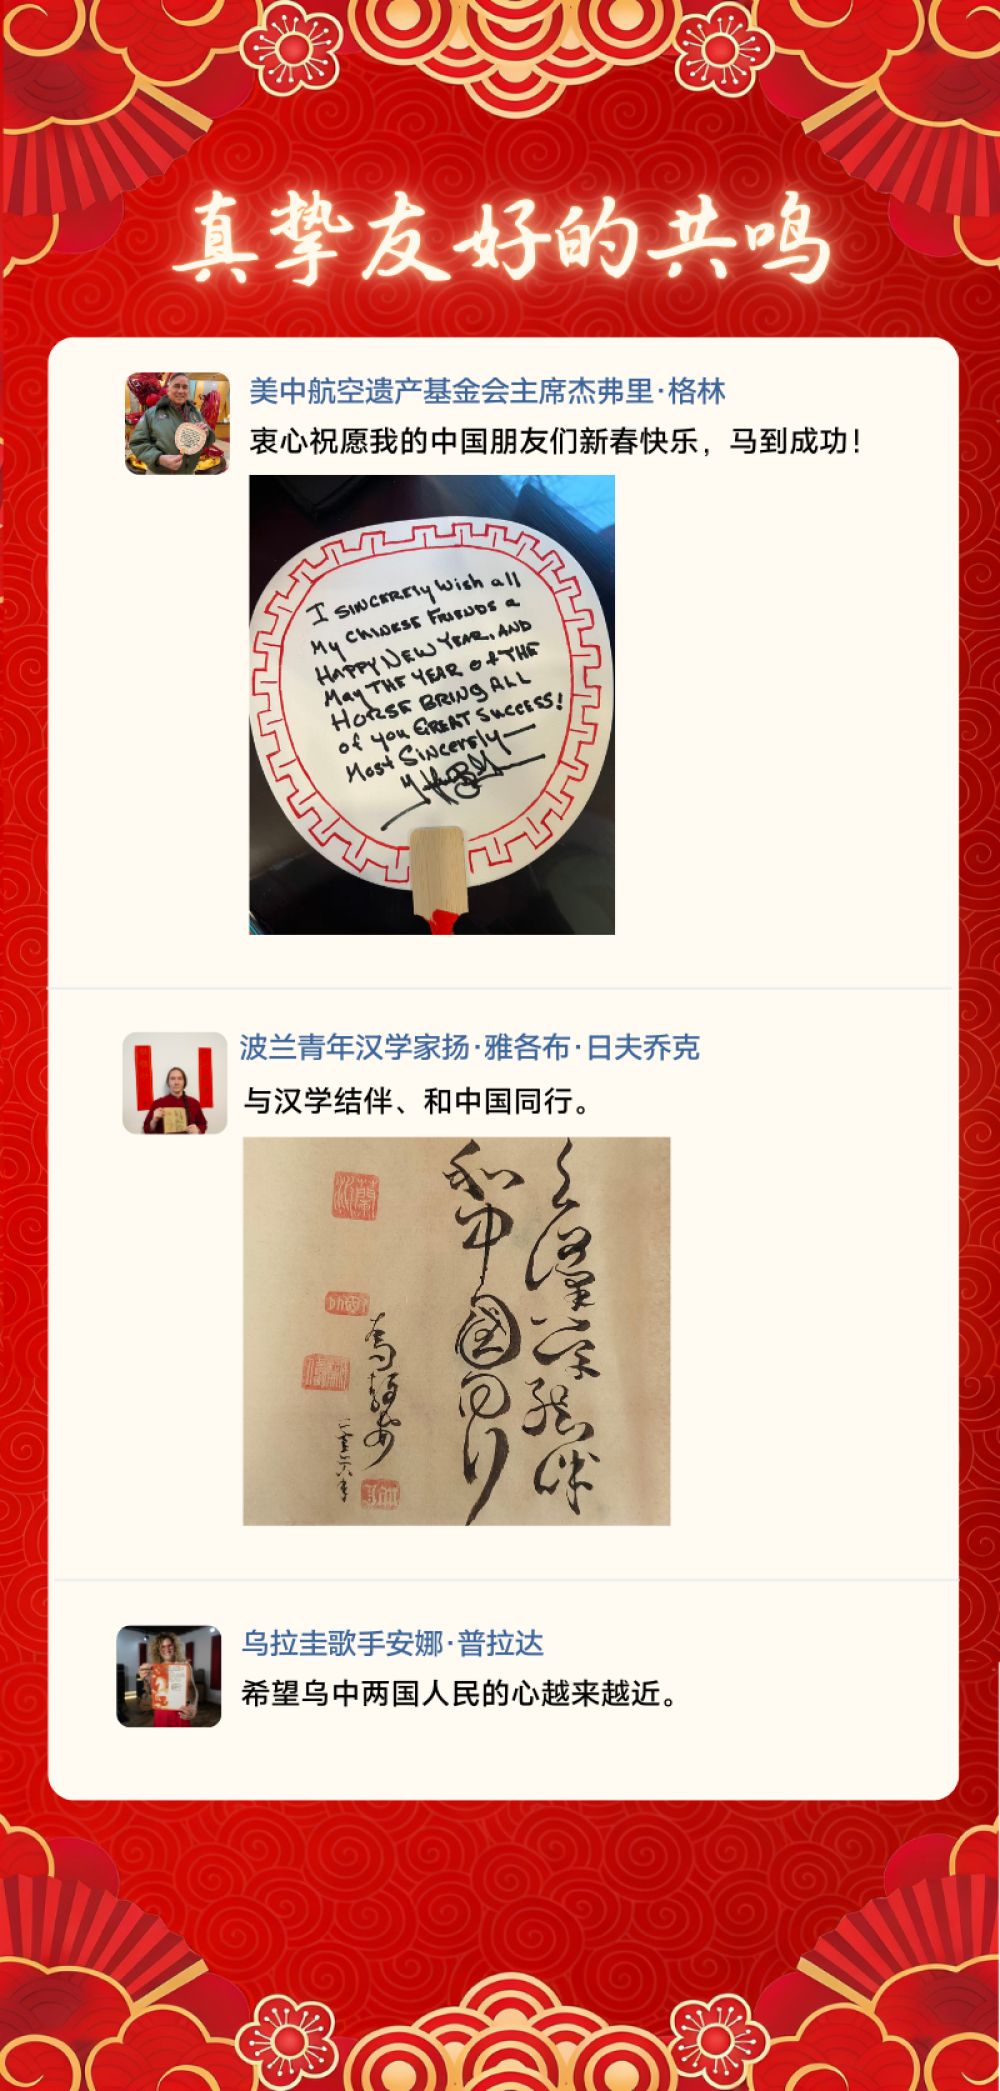 真挚友好的共鸣
美中航空遗产基金会主席杰弗里·格林
衷心祝愿我的中国朋友们新春快乐，马到成功！
I SINCERELY Wish all
My CHINESE FRIENDS a
HAPPY NEW YEAR, AND
May THE YEAR of THE
HORSE BRING ALL
of you GREAT SUCCESS!
Most SINCERELY—
波兰青年汉学家扬·雅各布·日夫乔克
与汉学结伴、和中国同行。
与漢学結伴
和中國同行
二零二六年
乌拉圭歌手安娜·普拉达
希望乌中两国人民的心越来越近。